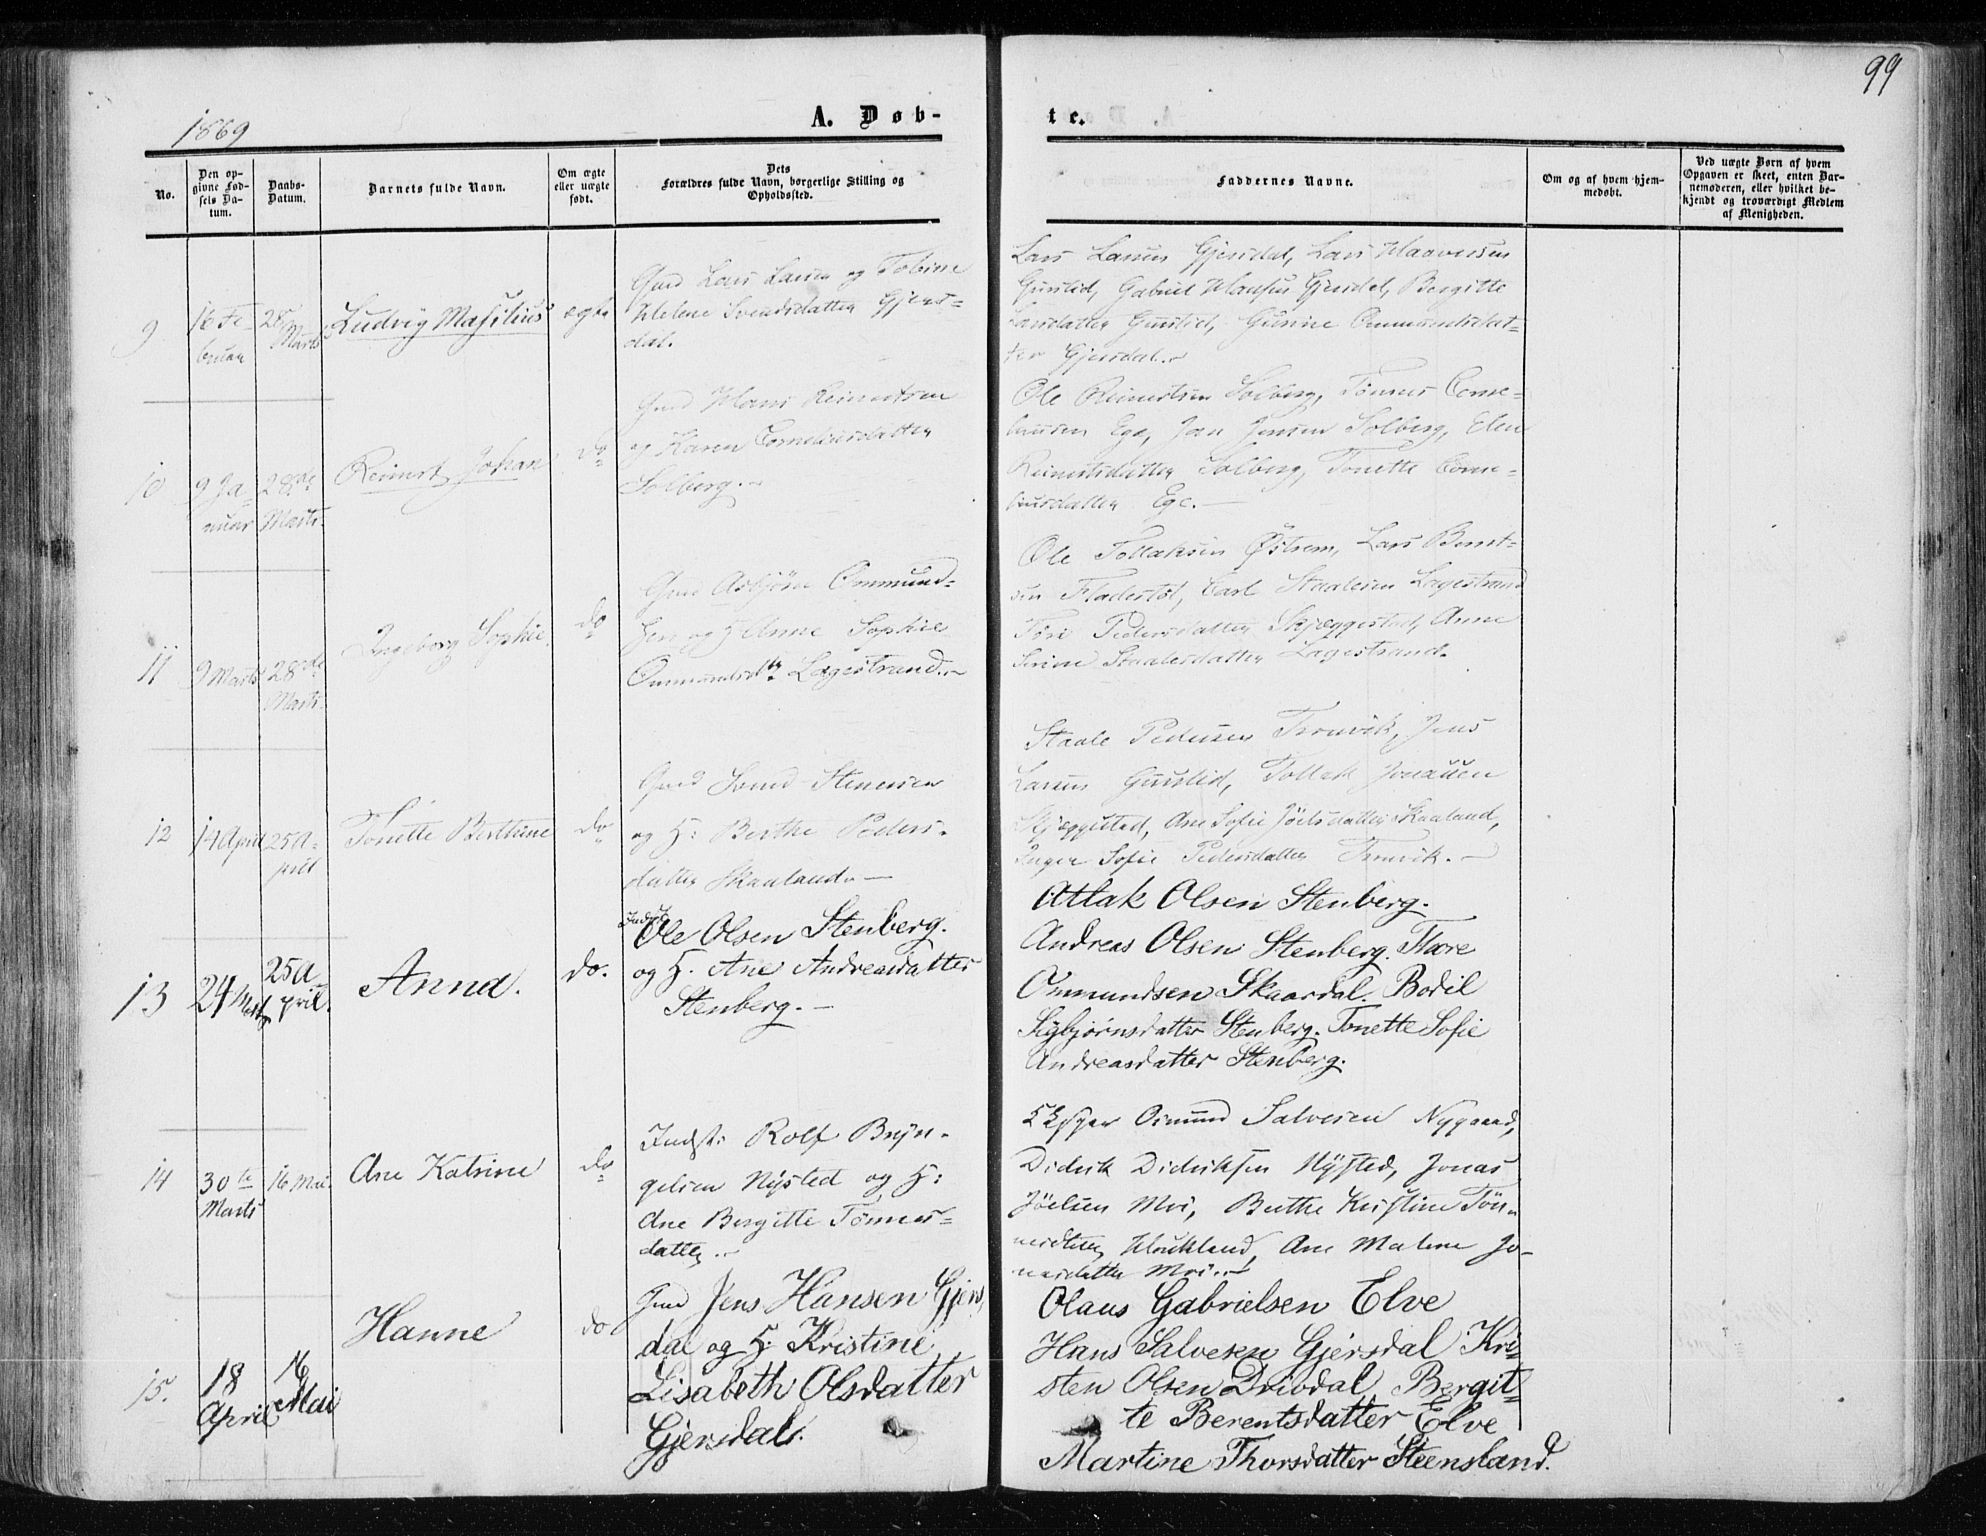 99
1869
A. Døb-
te.
No.
Den op-
givne Fød-
sels Da-
tum.
Daabs-
Datum.
Barnets fulde Navn.
Om ægte
eller uægte
født.
Dets
Forældres fulde Navn, borgerlige Stilling og
Opholdssted.
Faddernes Navne.
Om og af hvem hjem-
medøbt.
Ved uægte Børn af hvem
Opgaven er skeet, enten Bar-
nemoderen, eller hvilket be-
kjendt og troværdigt Medlem
af Menigheden.
9
16 Fe-
bruar
28
Marts
Ludvig Masilius
ægte
Gmd Lars Larsen og Tobine
Helene Svendsdatter Gjers-
dal.
Lars Larsen Gjersdal, Lars Haaversen
Guslid, Gabriel Hansen Gjersdal, Bergitte
Larsdatter Guslid, Gurine Ommundsdat-
ter Gjersdal.
10
9 Ja-
nuar
28de
Marts.
Reinert Johan
do
Gmd Hans Reinertsen
og Karen Corneliusdatter
Solberg.
Ole Reinertsen Solberg, Tønnes Corne-
liusen Ege, Jan Jensen Solberg, Elen
Reinertsdatter Solberg, Tonette Corne-
liusdatter Ege.
11
9 Marts
28de
Marts.
Ingeborg Sophie
do
Gmd Asbjörn Ommund-
sen og H Anne Sophie
Ommundsdtr Lægestrand.
Ole Tollaksen Östrem, Lars Bernt-
sen Fladestøl, Carl Staalesen Lægestrand
Pedersdatter Skjeggestad, Anne
Serine Staalesdatter Lægestrand.
12
14 April
25 A-
pril
Tonette Berthine
do
Gmd Svend Stenersen
og H: Berthe Peders-
datter Skaaland.
Staale Pedersen Tronvik, Jens
Larsen Guslid, Tollak Jonassen
Skjæggestad, Ane Sofie Jöelsdatter Skaaland,
Inger Sofie Pedersdatter Tronvik.
13
24 Marts
25 A-
pril.
Anna.
do.
Indst
Ole Olsen Stenberg.
og H. Ane Andreasdatter
Stenberg.
Atlak Olsen Stenberg.
Andreas Olsen Stenberg. Thore
Ommundsen Skaardal. Bodil
Sigbjørnsdatter Stenberg. Tonette Sofie
Andreasdatter Stenberg.
14
30te
Marts
16 Mai.
Ane Katrine
do
Indst: Rolf Bryn-
gelsen Nysted og H:
Ane Bergitte Tønnes-
datter.
Osmund Salvesen Nygaard,
Didrik Didriksen Nysted, Jonas
Jöelsen Moi, Berthe Kristine Tön-
nesdtter Houkland, Ane Malene Jo-
nasdatter Moi.
15.
18
April
16
Mai
Hanne
do
Gmd Jens Hansen Gjers
dal og H: Kristine
Lisabeth Olsdatter
Gjersdal.
Olaus Gabrielsen Elve
Hans Salvesen Gjersdal Kri-
sten Olsen Drivdal Bergit-
te Berentsdatter Elve
Martine Thorsdatter Steensland.